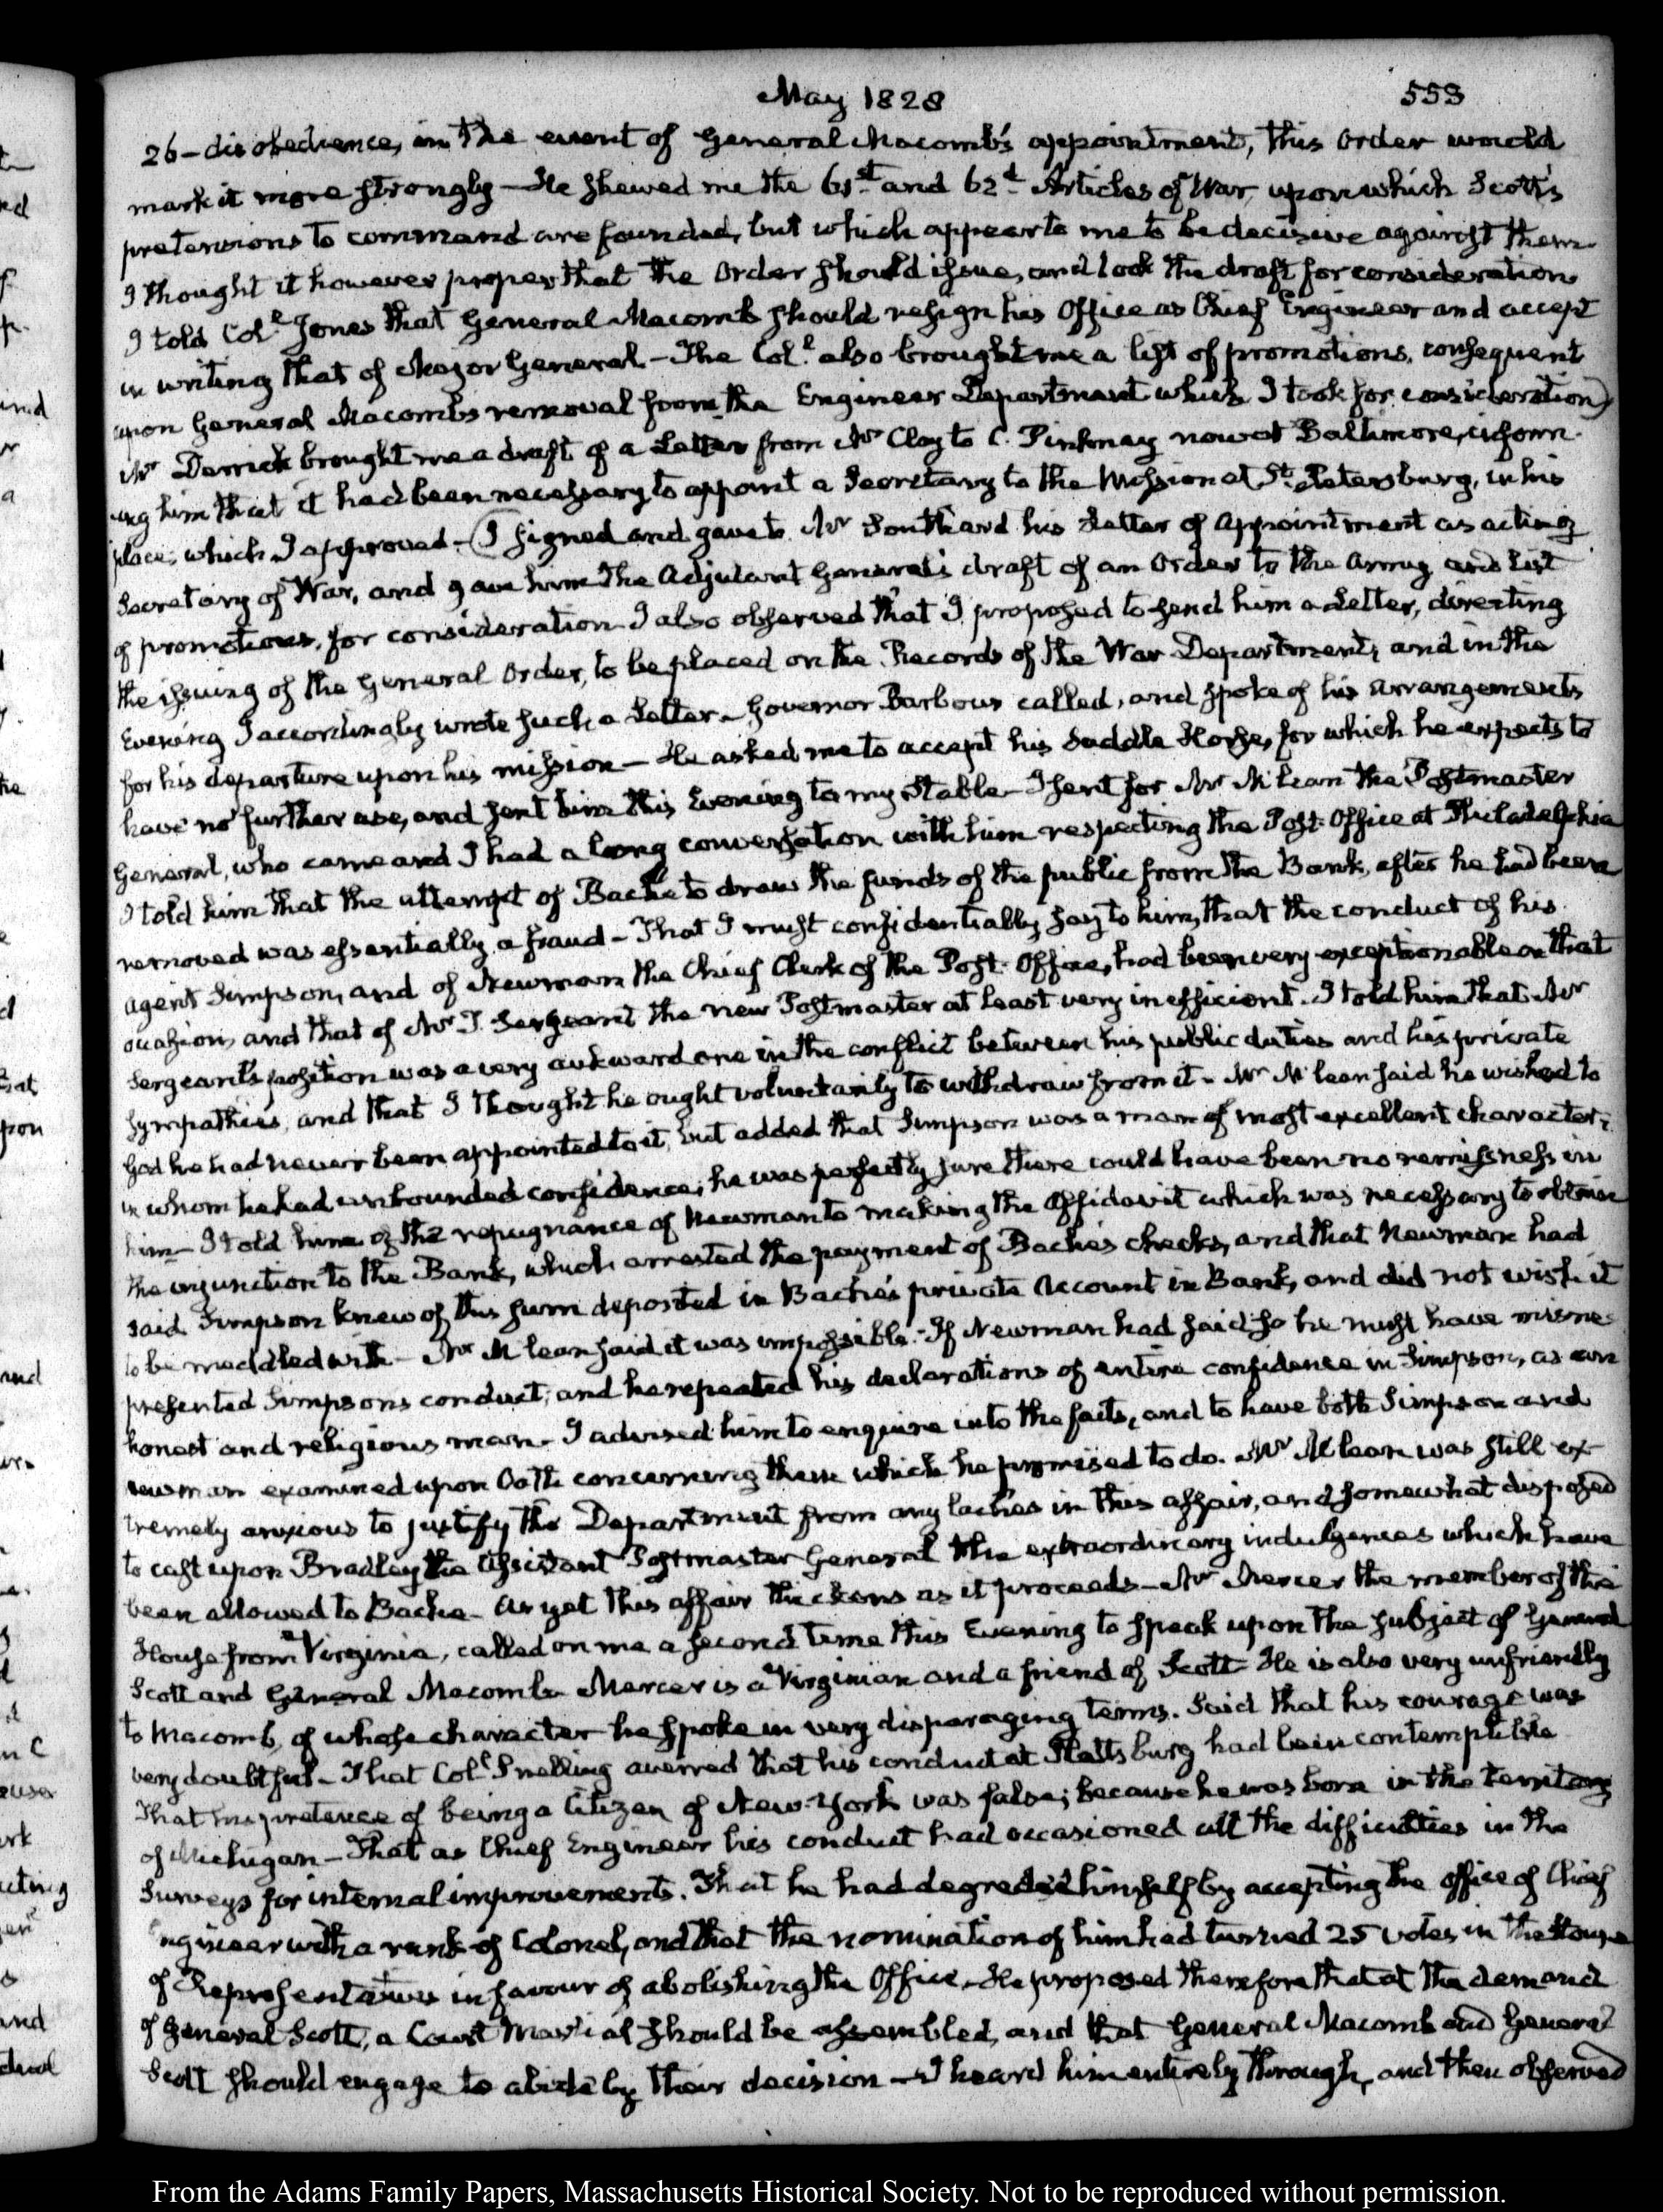 May 1828
553
26 - disobedience, in the event of General Macomb's appointment, this Order would
mark it more strongly - He shewed me the 61st and 62d Articles of War, upon which Scott's
pretensions to command are founded, but which appear to me to be decisive against them.
I thought it however proper that the Order should issue, and took the draft for consideration
I told Coll Jones that General Macomb should resign his Office as Chief Engineer and accept
in writing that of Major General. - The Coll also brought me a list of promotions, consequent
upon General Macomb's removal from the Engineer Department which I took for consideration)
Mr Derrick brought me a draft of a Letter from Mr Clay to C. Pinkney now at Baltimore, inform-
ing him that it had been necessary to appoint a Secretary to the Mission at St Petersburg, in his
place, which I approved - (I signed and gave to Mr Southard his Letter of appointment as acting
Secretary of War, and gave him the Adjutant General's draft of an Order to the Army and List
of promotions, for consideration I also observed that I proposed to send him a Letter, directing
the issuing of the General Order, to be placed on the Records of the War Department, and in the
Evening I accordingly wrote such a Letter - Governor Barbour called, and spoke of his arrangements
for his departure upon his mission - He asked me to accept his Saddle Horse, for which he expects to
have no further use, and sent him this Evening to my Stable - I sent for Mr McLean the Postmaster
General, who came and I had a long conversation with him respecting the Post-Office at Philadelphia
I told him that the attempt of Bache to draw the funds of the public from the Bank, after he had been
removed was essentially a fraud - That I must confidentially say to him, that the conduct of his
agent Simpson, and of Newman the Chief Clerk of the Post-Office, had been very exceptionable on that
occasion, and that of Mr T. Sergeant the new Postmaster at least very inefficient. I told him that Mr
Sergeant's position was a very aukward one in the conflict between his public duties and his private
sympathies, and that I thought he ought voluntarily to withdraw from it - Mr McLean said he wished to
God he had never been appointed to it, but added that Simpson was a man of most excellent character;
in whom he had unbounded confidence; he was perfectly sure there could have been no remissness in
him - I told him of the repugnance of Newman to making the affidavit which was necessary to obtain
the injunction to the Bank, which arrested the payment of Bache's checks, and that Newman had
said Simpson knew of this sum deposited in Bache's private Account in Bank, and did not wish it
to be meddled with - Mr McLean said it was impossible. If Newman had said so he must have misre-
presented Simpson's conduct; and he repeated his declarations of entire confidence in Simpson, as an
honest and religious man - I advised him to enquire into the facts, and to have both Simpson and
Newman examined upon Oath concerning them which he promised to do. Mr McLean was still ex-
tremely anxious to justify the Department from any laches in this affair, and somewhat disposed
to cast upon Bradley the Assistant Postmaster General the extraordinary indulgences which have
been allowed to Bache - As yet this affair thickens as it proceeds - Mr Mercer the member of the
House from Virginia, called on me a second time this Evening to speak upon the subject of General
Scott and General Macomb - Mercer is a Virginian and a friend of Scott - He is also very unfriendly
to Macomb, of whose character he spoke in very disparaging terms. Said that his courage was
very doubtful - That Coll Snelling averred that his conduct at Plattsburg had been contemptible
That his pretence of being a Citizen of New-York was false; because he was born in the Territory
of Michigan - That as Chief Engineer his conduct had occasioned all the difficulties in the
Surveys for internal improvements. That he had degraded himself by accepting the office of Chief
Engineer with a rank of Colonel, and that the nomination of him had turned 25 votes in the House
of Representatives in favour of abolishing the Office - He proposed therefore that at the demand
of General Scott, a Court Martial should be assembled, and that General Macomb and General
Scott should engage to abide by their decision - I heard him entirely through, and then observed
From the Adams Family Papers, Massachusetts Historical Society. Not to be reproduced without permission.